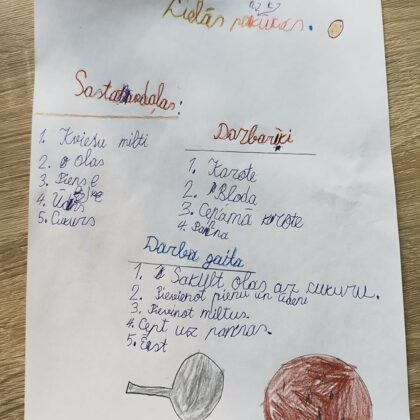 Lielās pankūkas.
Sastavdaļas:
1. Kviešu milti
2. olas
3. Piens
4. Ūdens
5. Cukurs
Darbarīki
1. Karote
2. Bloda
3. Cepāmā karote
4. Panna
Darba gaita
1. Sakult olas ar cukuru.
2. Pievienot pienu un ūdeni
3. Pievinot miltus.
4. Cept uz pannas.
5. Ēst